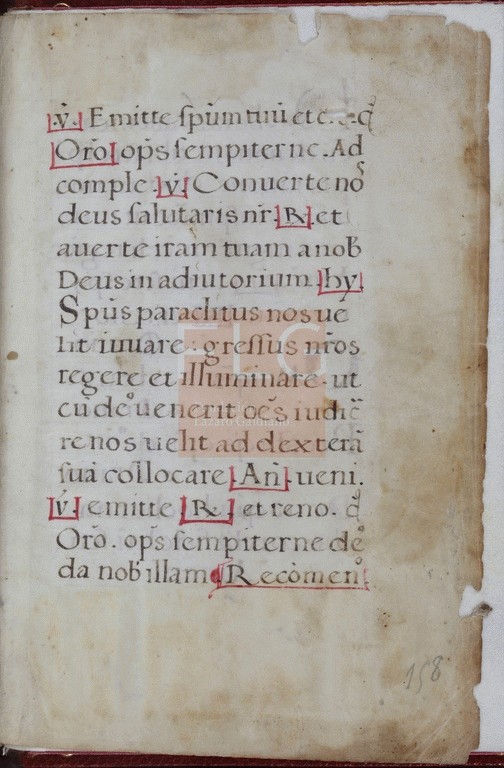 v̇. Emitte spūm tuū etc.
Orō op̄s sempiterne. Ad
comple. v̇. Conuerte nos
deus salutaris nr̄. R. et
auerte iram tuam a nob
Deus in adiutorium. hy
Spūs paraclitus nos ue
lit iuuare: gressus nr̄os
regere et illuminare. ut
cū deo uenerit oēs iudic̄
re nos uelit ad dexterā
suā collocare. An̄. ueni.
v̇. emitte. R. et reno.
Orō. op̄s sempiterne de
da nob illam Recōmen
FLG
Lázaro Galdiano
158